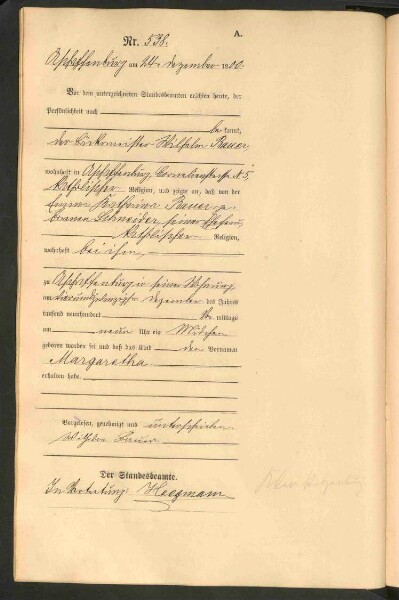 A.
Nr. 538.
Aschaffenburg am 24. Dezember 1900.
Vor dem unterzeichneten Standesbeamten erschien heute, der
Persönlichkeit nach
bekannt,
der Wilhelm Bauer,
wohnhaft in Aschaffenburg 5,
katholischer Religion, und zeigte an, daß von der
Katharina Bauer, ge-
borenen Schneider, seiner Ehefrau,
katholischer Religion,
wohnhaft bei ihm,
zu Aschaffenburg in seiner Wohnung
am Dezember des Jahres
tausend neunhundert Vor mittags
um neun Uhr ein Mädchen
geboren worden sei und daß das Kind den Vornamen
Margaretha
erhalten habe.
Vorgelesen, genehmigt und unterschrieben
Wilhelm Bauer
Der Standesbeamte.
In Vertretung